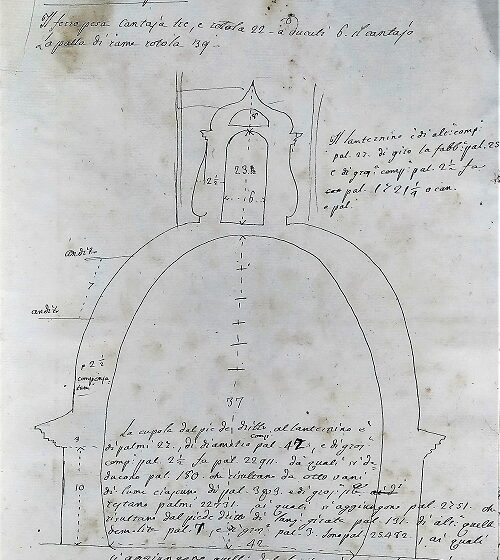 Il ferro pesa Cantaja tre, e rotola 22 - a ducati 6. il cantajo
La palla di rame rotola 139.
Il lanternino è di alt. comp.
pal. 27. di giro la fabb. pal. 25
e di gros. comp. pal. 2½ fa
pal. o can.
e pal.
5
23.
2½
6.
andito
7
andito
2½
37
La cupola dal piè de dritto al lanternino è
di palmi 27. di diametro comp. pal. 47, e di gros.
comp. pal. 2½ fa pal. 22911. da quali si de-
ducono pal. 180. che risultano da otto vani
di lume ciascuno di pal. 3 e di gros.
restano palmi 22731. ai quali s'aggiungono pal. 2751. che
risultano dal piè dritto di lung. girata pal. 131. di alt. quella
pal. 7, e di gros. pal. 3. sono pal. 25482. ai quali
10
42
si aggiungono